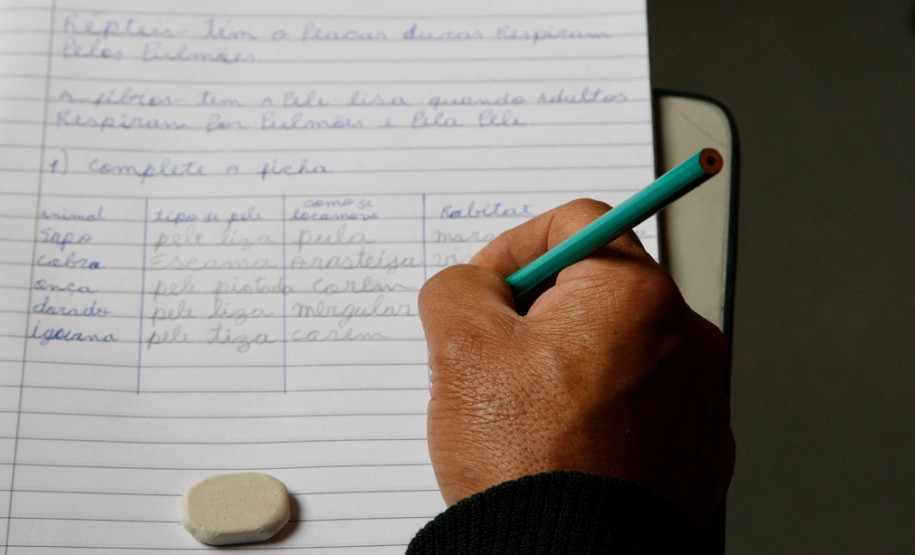 Répteis - têm o Placas duras Respiram
Pelos Pulmões.
Anfíbios - tem a Pele lisa quando adultos
Respiram Por Pulmões e Pela Pele
1) complete a ficha
animal tipo de pele como se locomove Habitat
sapo pele liza pula
cobra Escama Arasteija
onça pele pintada corem
dorado pele liza mergular
iguana pele liza corem